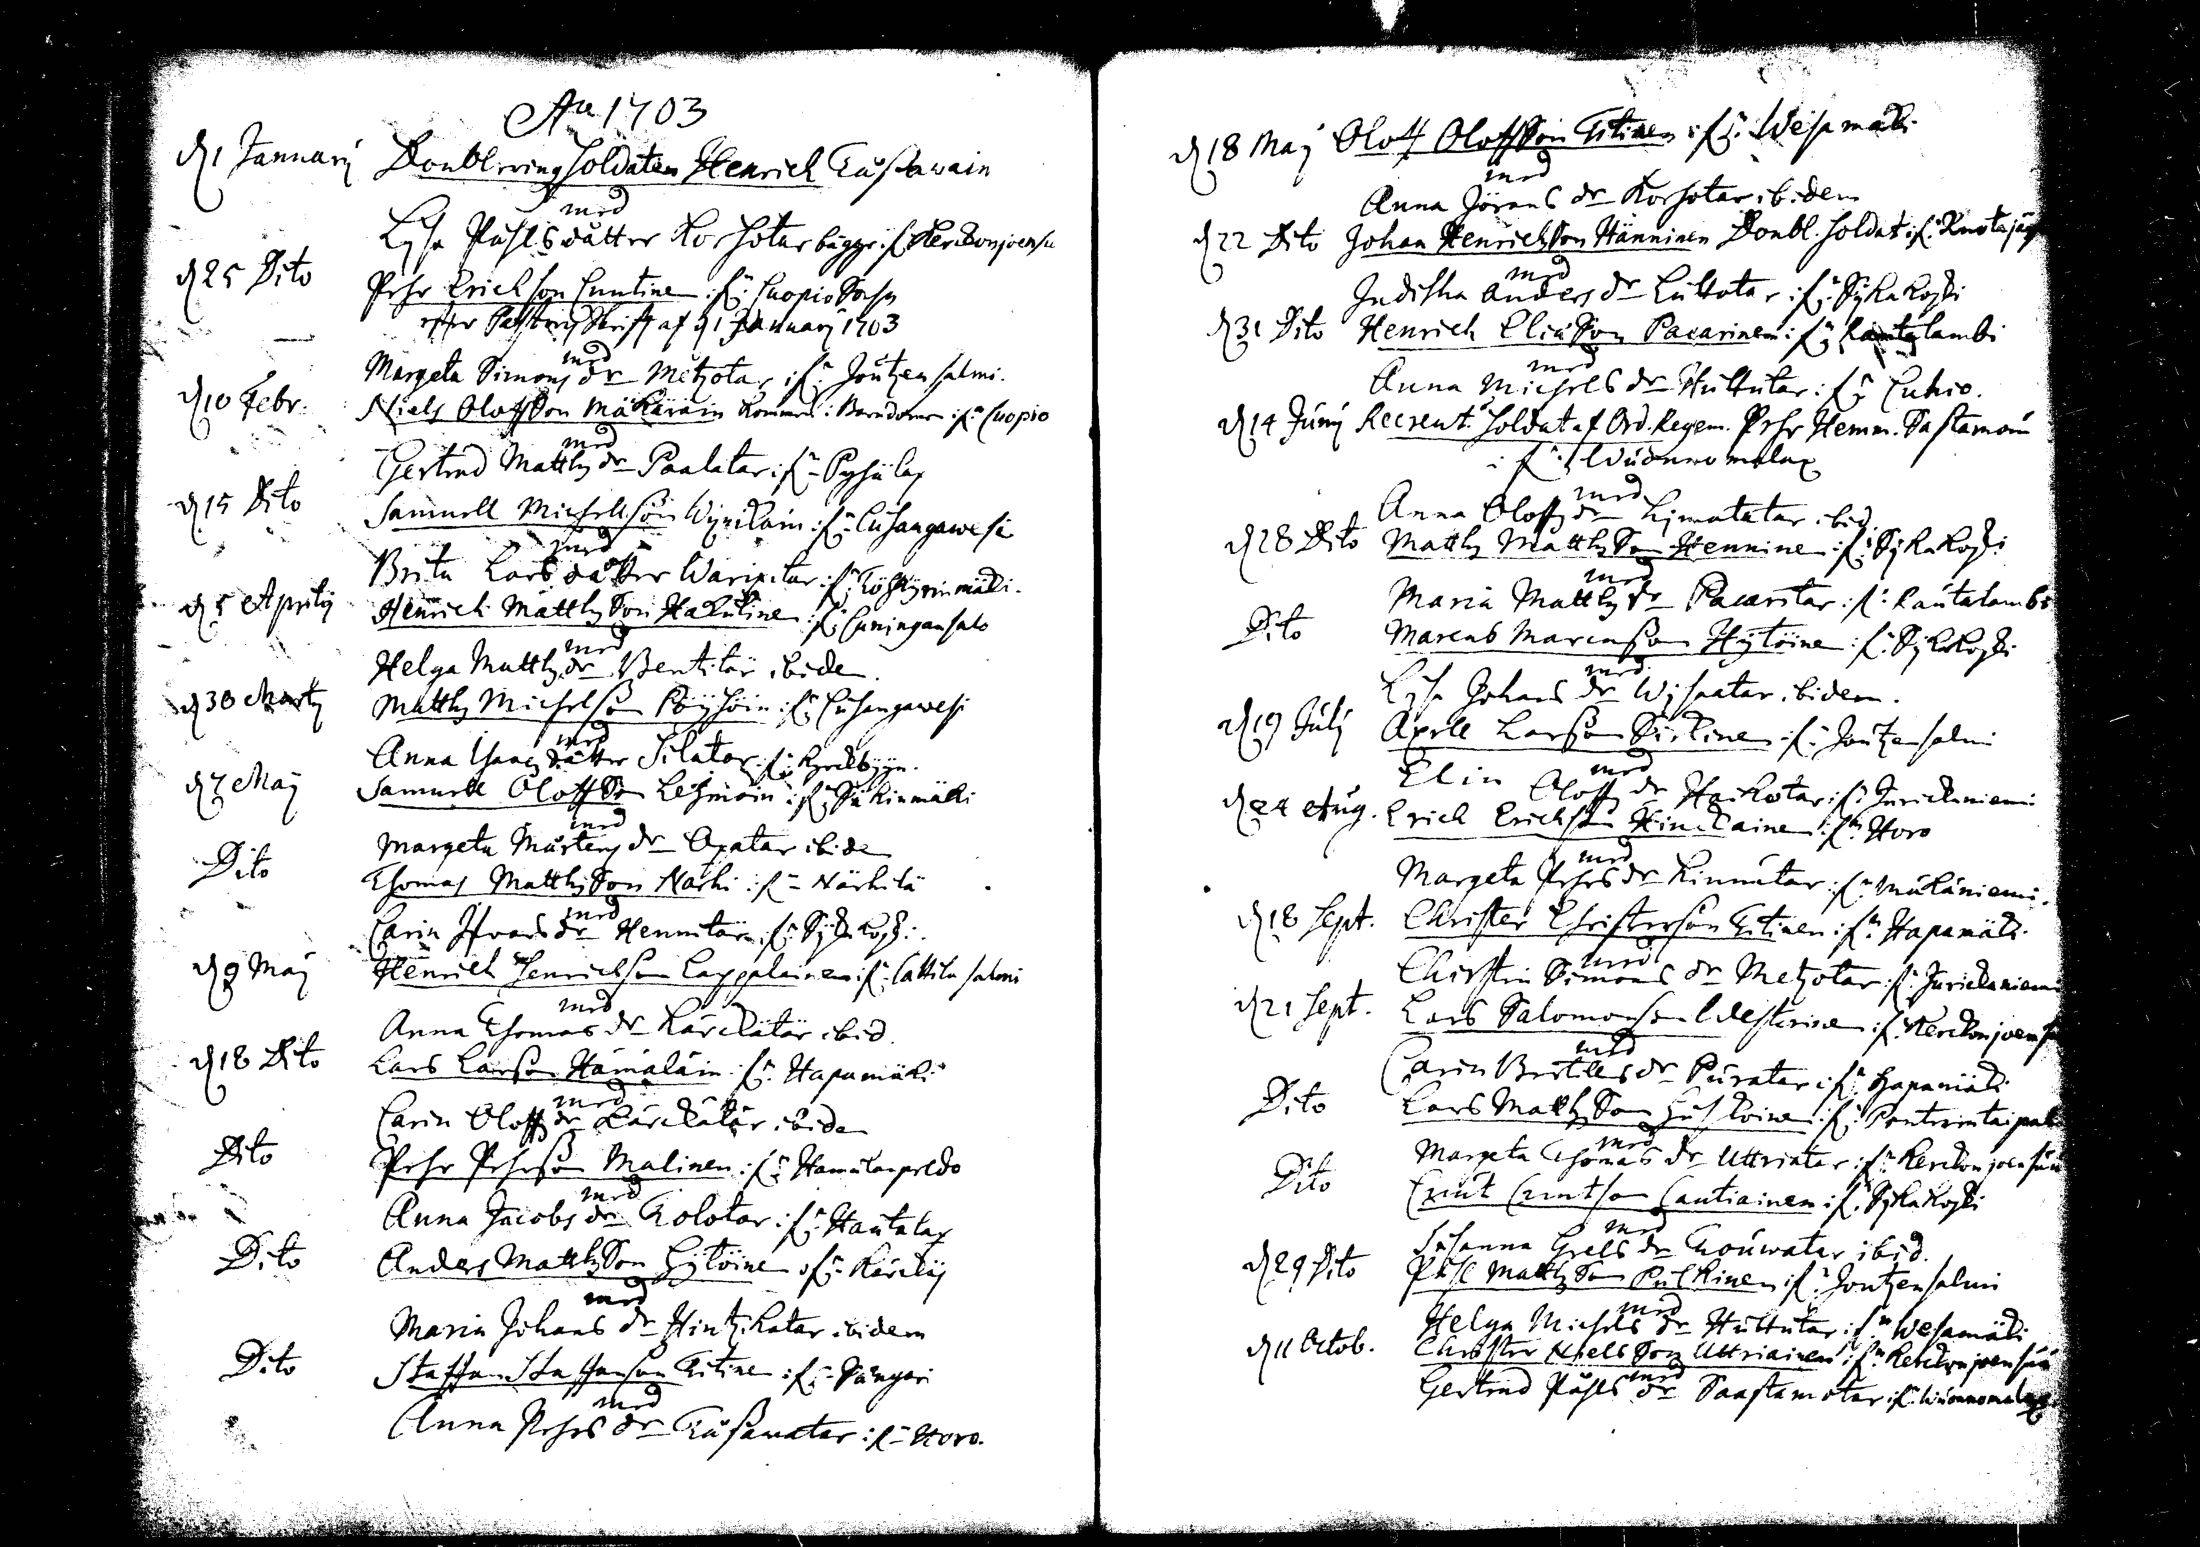 Ao 1703
d 1 Januarij Doubleringssoldaten Henrich Tussawain
med
Lisa Påhlsdåtter Korhotar bägge if: Kerckonjoensu
d 25 Dito Pehr Erichson Cuntine if: Cuopio Sochn
efter Pastoris skrift af d 1 Januarij 1703
med
Margeta Simons dr Metzotar if: Joutzensalmi.
d 10 Febr. Niels Olofsson Mäkäräin if: Cuopio
med
Gertrud Matthz dr Paalatar if: Pyhälax
d 15 Dito Samuell Michellson if: Cuhangawesi
med
Brita Larsdåtter Warixtar if:
d 5 Aprilij Henrich Matthzson Hakuline if: Cuningansalo
med
Helga Matthz dr Bentitär ibidem
d 30 Martij Matthz Michelson Pöyhöin if: Cuhangawesi
med
Anna dåtter Silatar if:
d 7 Maij Samuell Olofsson Lehmoin if:
med
Margeta Mårtens dr Apatar ibidem
Dito Thomas Matthzson Närhi if: Närhilä
med
Carin Ifvars dr Hennitar if: Sijkakoski
d 9 Maij Henrich Henrichson Lappalainen if: Cattilasalmi
med
Anna Thomas dr Kärckätär ibid.
d 18 Dito Lars Larson Hämäläin if: Hapamäki
med
Carin Olofz dr Kärckätär ibidem
Dito Pehr Pehrson Malinen if: Hamulanpeldo
med
Anna Jacobs dr Tolotar if: Hautalax
Dito Anders Matthzson Hytöine if:
med
Maria Johans dr Hintzikatar ibidem
Dito Staffan Staffanson Titine if: Pängäri
med
Anna Pehrs dr Tussawatar if: Horo.
d 18 Maij Olof Olofsson Titinen if: Wesamäki
med
Anna Jörans dr Korhotar ibidem
d 22 Dito Johan Henrichson Hänninen Doubl. soldat if:
med
Juditha Anders dr if: Sijkakoski
d 31 Dito Henrich Eliæson Pacarinen if: Rautalambi
med
Anna Michels dr Huttutar if: Cuhio.
d 14 Junij Recreut: soldat af Ord. Regem. Pehr Hemm. Sastamoin
if: Wuonnomalax
med
Anna Olofz dr Lijmatatar ibid.
d 28 Dito Matthz Matthzson Henninen if: Sijkakoski
med
Maria Matthz dr Pacaritar if: Rautalambi
Dito Marcus Marcusson Hytöine if: Sijkakoski
med
Lisa Johans dr ibidem.
d 19 Julij Axell Larson if: Joutzensalmi
med
Elin Olofz dr Haikotar if: Jurickaniemi
d 24 Aug. Erich Erichson Hinckaine if: Horo
med
Margeta Pehrs dr Kinnutar if: Mäkäniemi.
d 18 Sept. Christer Christerson Titinen if: Hapamäki
med
Christin Simons dr Metzotar if: Jurickaniemi
d 21 Sept. Lars Salomonson Westerinen if: Kerckonjoensu
med
Carin Bertills dr Puratar if: Hapamäki
Dito Lars Matthzson if:
med
Margeta Thomas dr Uttriatar if: Kerckonjoensuu
Dito Cnut Cnutson Cautiainen if: Sijkakoski
med
Susanna Grels dr Rouwatar ibid.
d 29 Dito Påhl Matthzson Pulkinen if: Joutzensalmi
med
Helga Michels dr Huttutar if: Wesamäki
d 11 Octob. Christer Nielsson Uttriainen if: Kerckonjoensuu
med
Gertrud Påhls dr Saastamotar if: Wuonnomalax